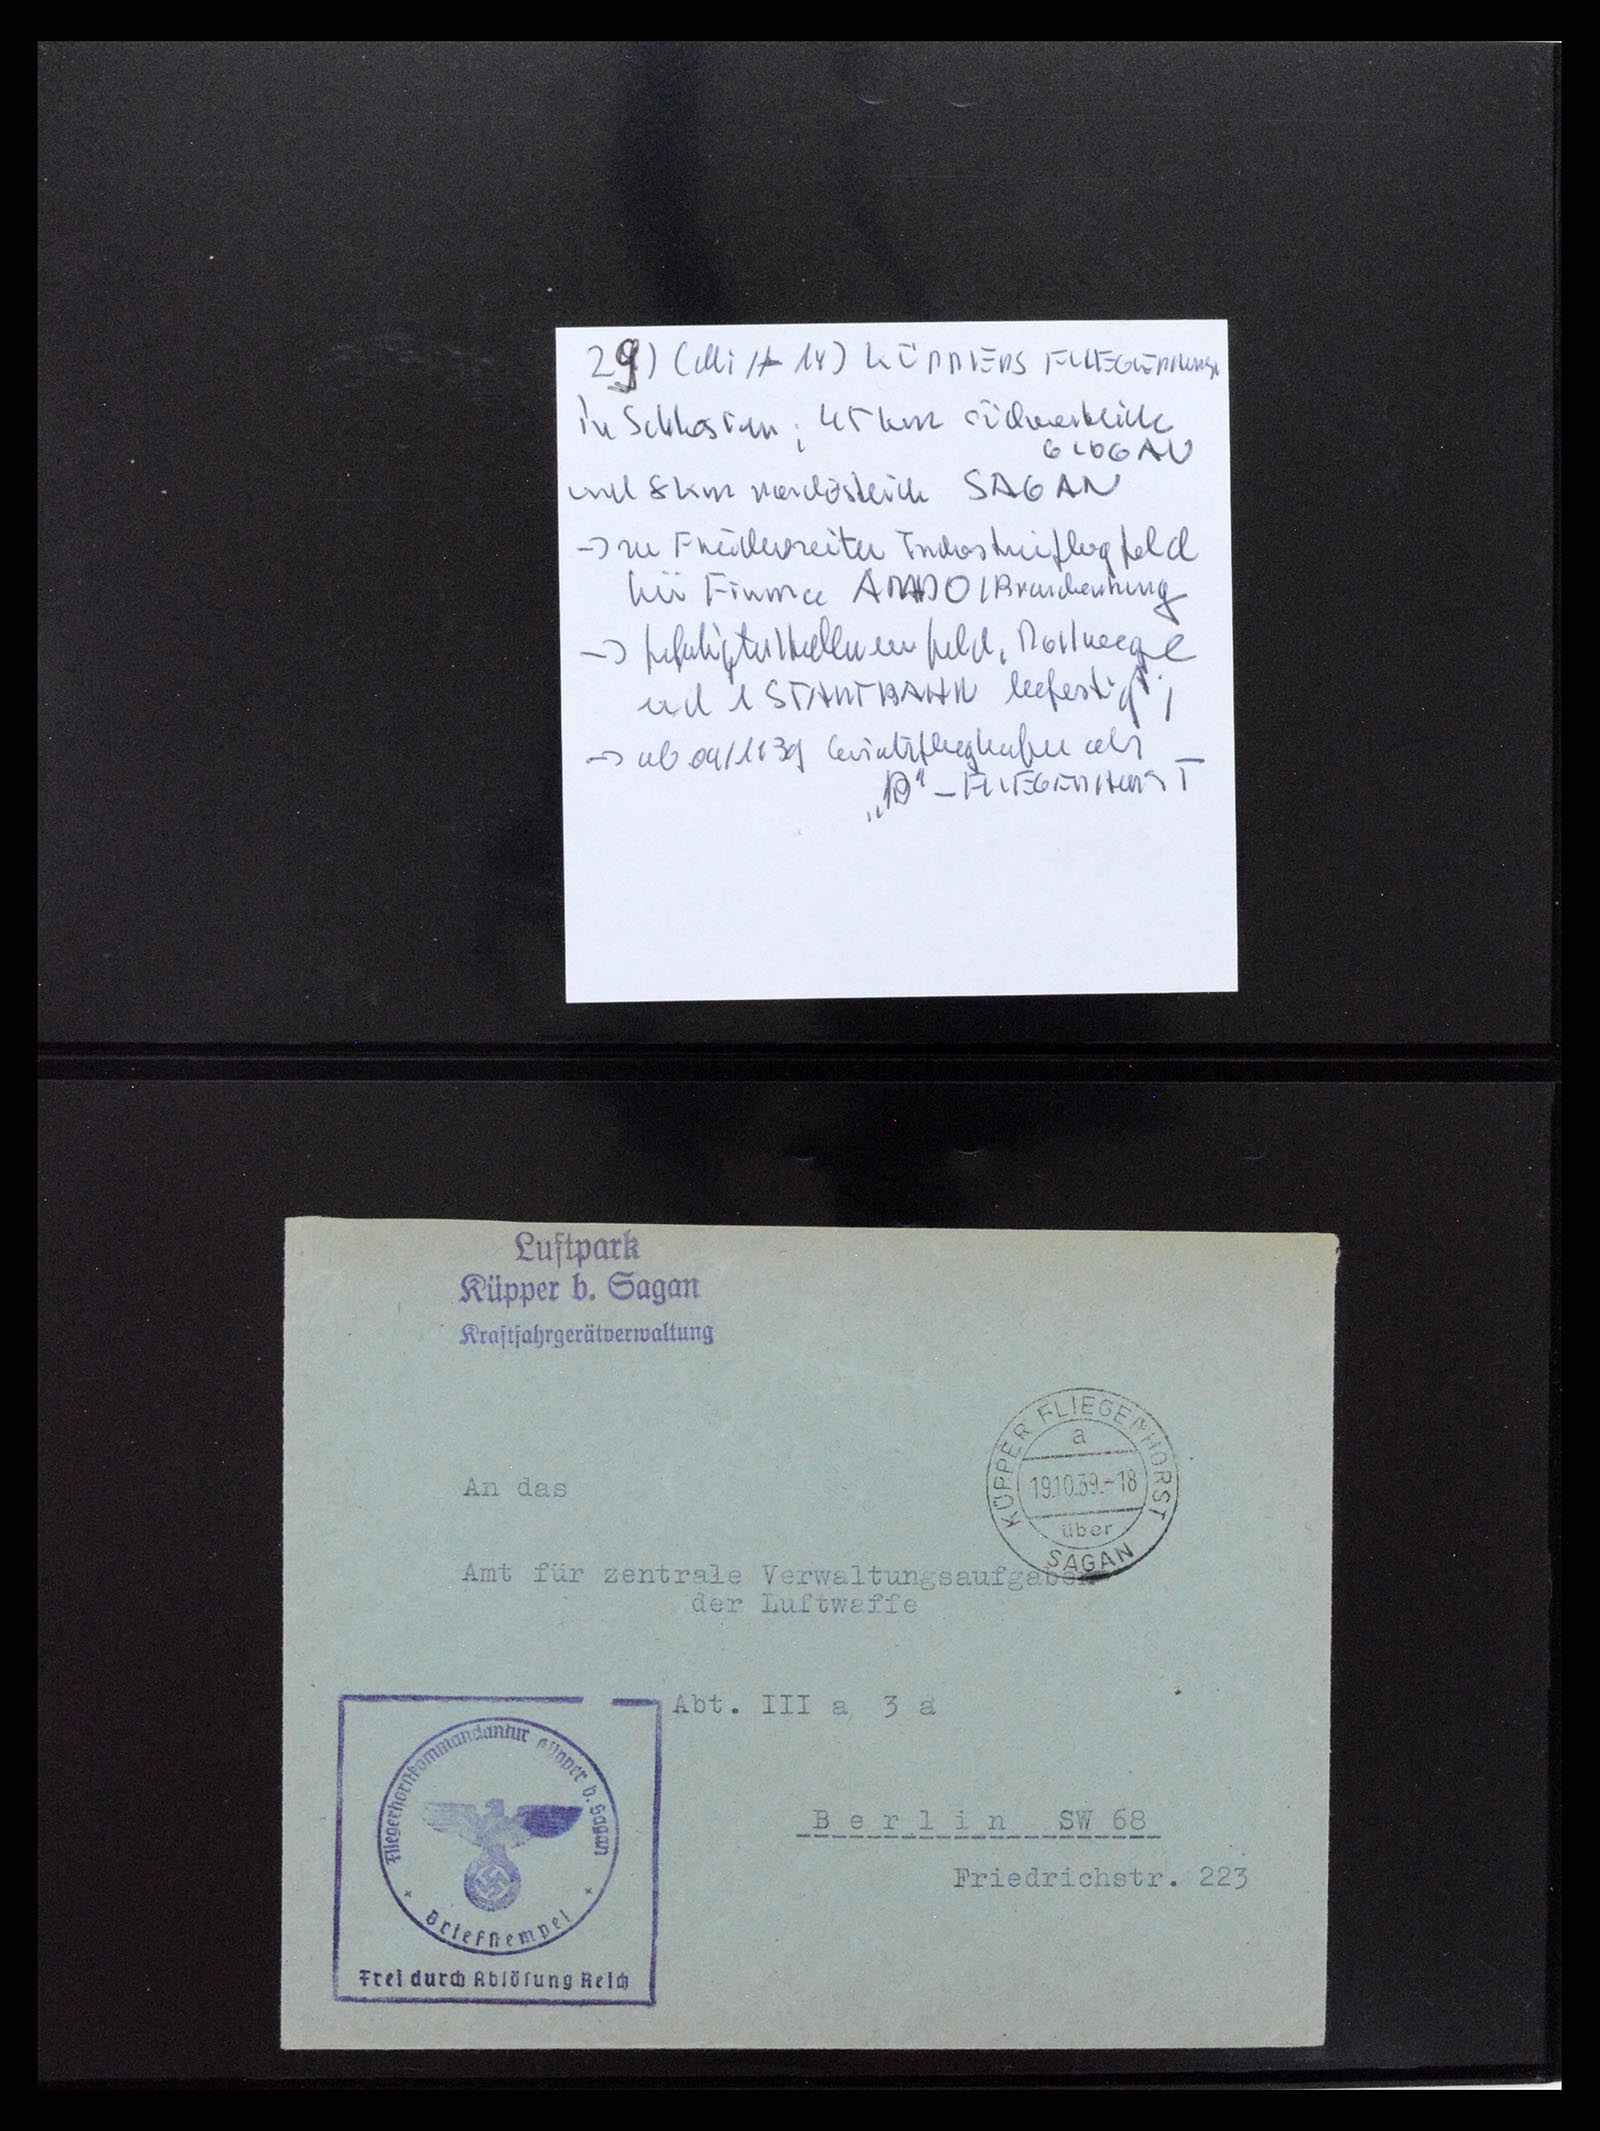 29)
in Schlesien; 45 km südwestlich
GLOGAU
und 8 km nordöstlich SAGAN
→ zu Friedenszeiten Industrieflugfeld
für Firma ARADO/Brandenburg
→ Rollwege
und 1 STARTBAHN befestigt;
→ ab
"B" - FLIEGERHORST
Luftpark
Küpper b. Sagan
Kraftfahrgerätverwaltung
KÜPPER FLIEGERHORST
a
19.10.39.-18
über
SAGAN
An das
Amt für zentrale Verwaltungsaufgaben
der Luftwaffe
Abt. III a 3 a
Berlin SW 68
Friedrichstr. 223
Fliegerhorstkommandantur Küpper b. Sagan
Briefstempel
Frei durch Ablösung Reich